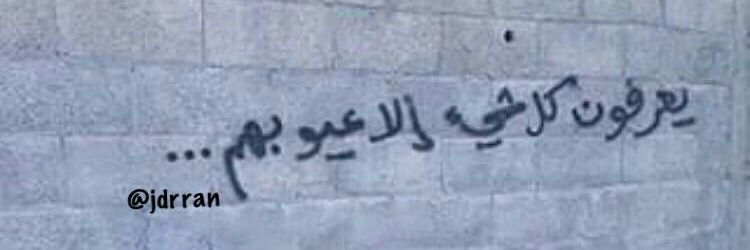 يعرفون كل شيء إلا عيوبهم ...
@jdrran